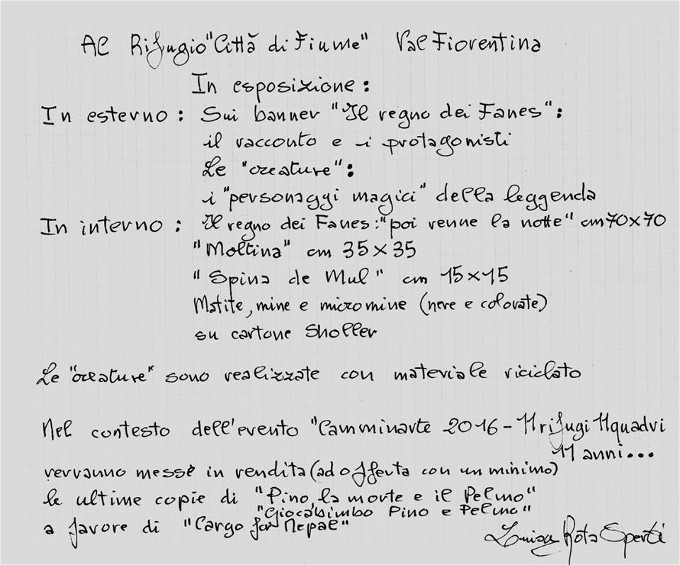 Al Rifugio "Città di Fiume" Val Fiorentina
In esposizione:
In esterno: Sui banner "Il regno dei Fanes":
il racconto e i protagonisti
Le "creature":
i "personaggi magici" della leggenda
In interno: Il regno dei Fanes: "poi venne la notte" cm 70x70
"Moltina" cm 35x35
"Spina de Mul" cm 15x15
Matite, mine e micromine (nere e colorate)
su cartone Sholler
Le "creature" sono realizzate con materiale riciclato
Nel contesto dell'evento "Camminarte 2016 - 11 rifugi 11 quadri
11 anni...
verranno messe in vendita (ad offerta con un minimo)
le ultime copie di "Pino, la morte e il Pelmo"
"Giocabimbo Pino e Pelmo"
a favore di "Cargo for Nepal"
Luisa Rota Sperti